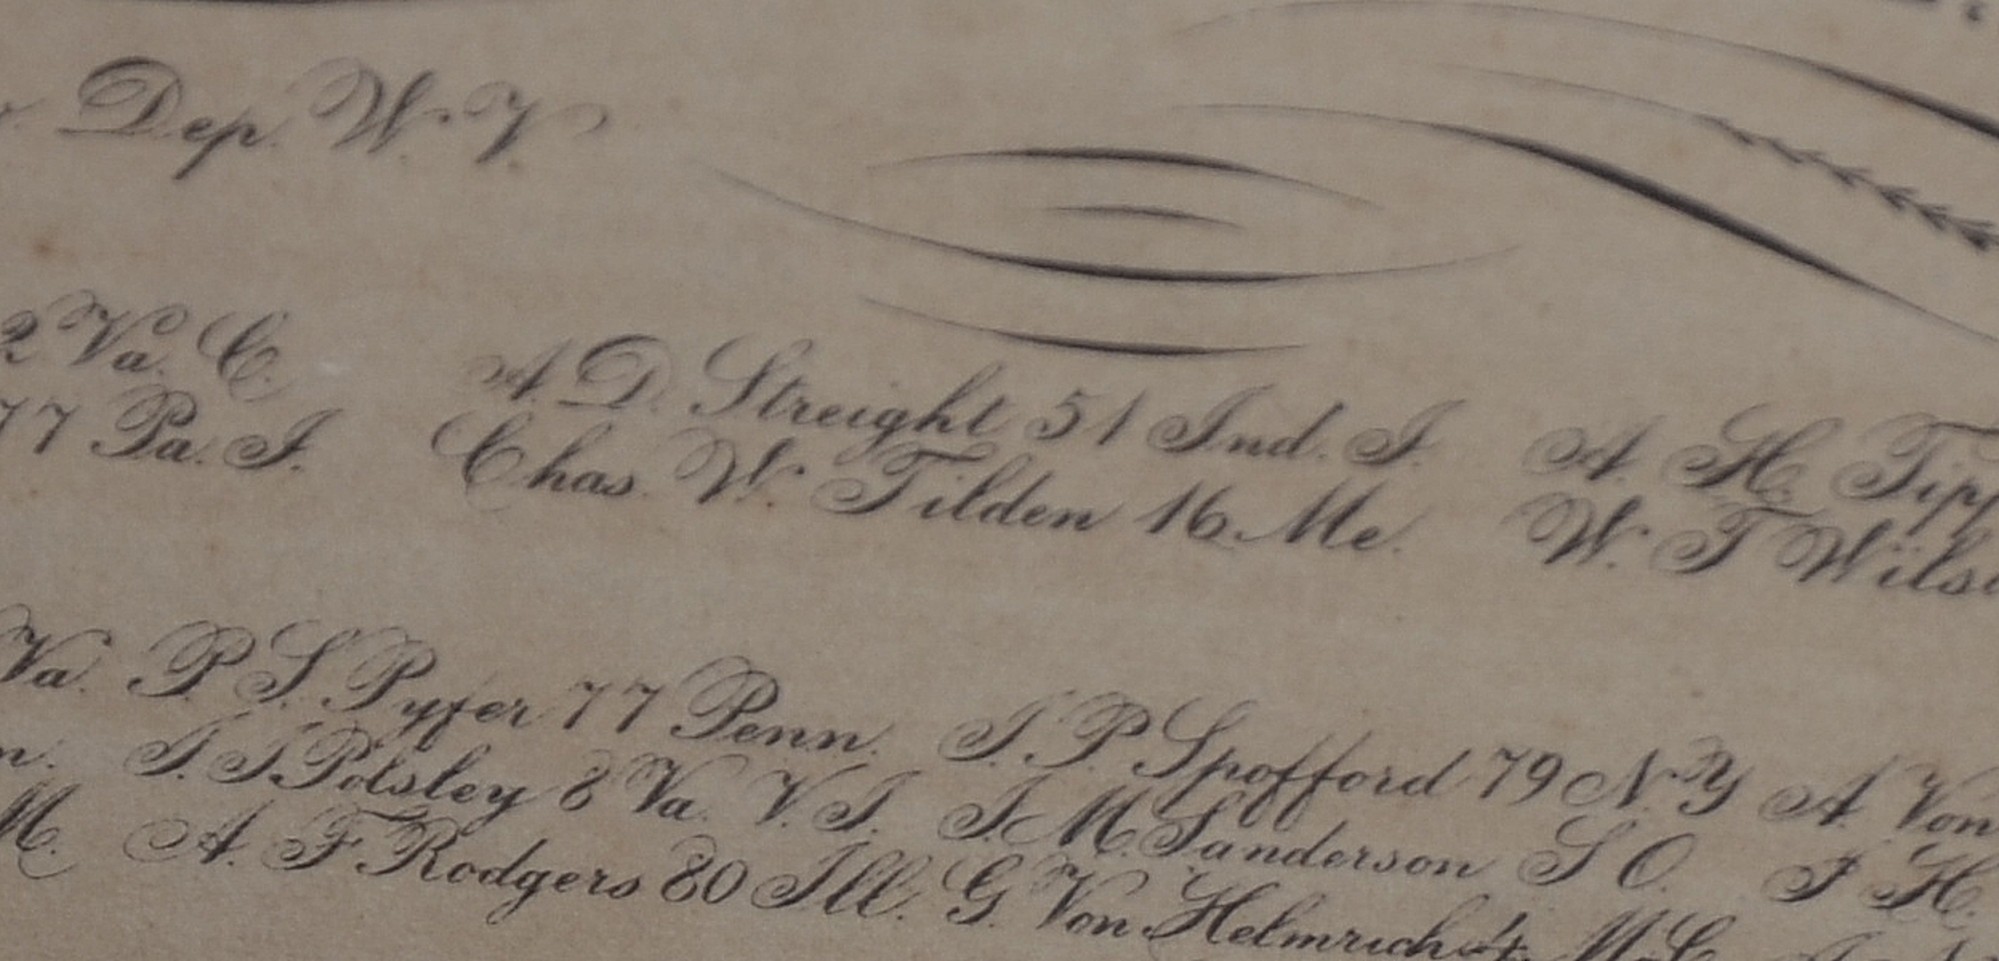 Dep. W. V.
2 Va. C. A. D. Streight 51 Ind. I. A. H. Tipp
77 Pa. I. Chas. W. Tilden 16. Me. W. T. Wils
Va. P. S. Pyfer 77 Penn. J. P. Spofford 79 N. Y A. Von
n. J. J. Polsley 8 Va. V. I. J. M. Sanderson S O. J H.
M. A. F. Rodgers 80 Ill. G. Von Helmrich 4. M. C.